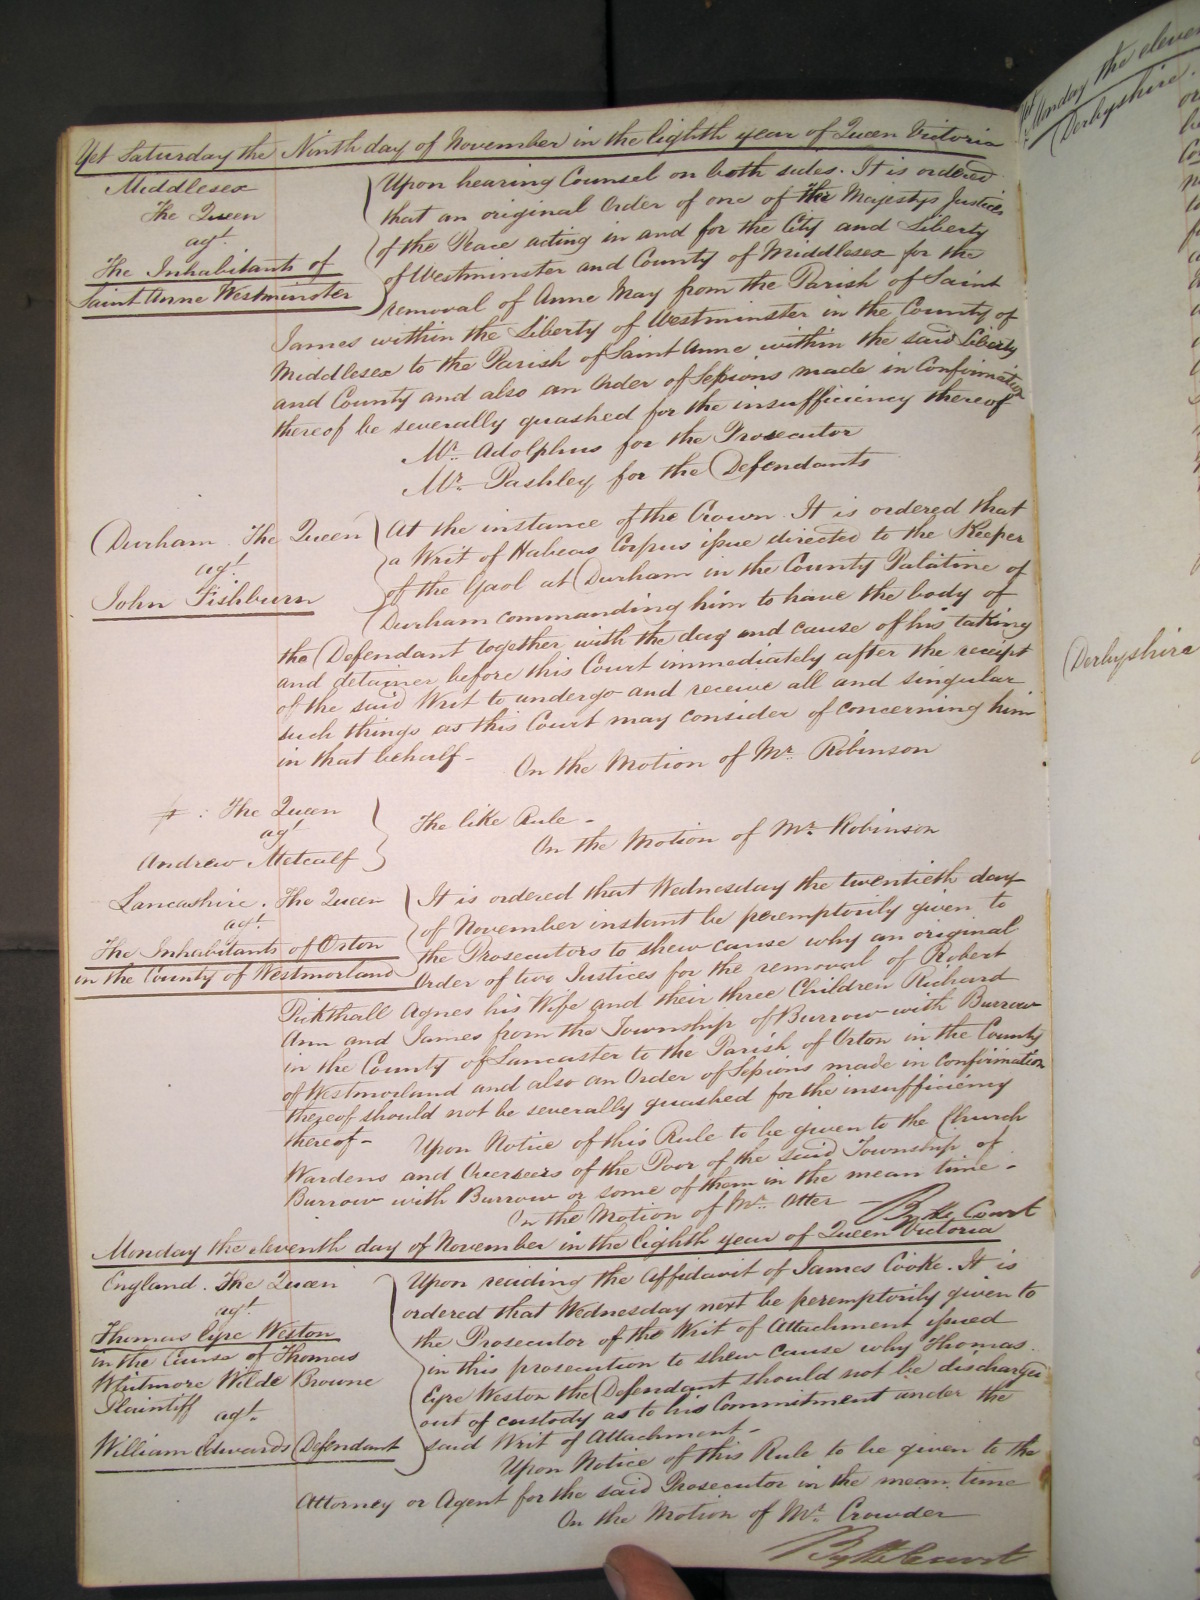 Yet Saturday the Ninth day of November in the Eighth year of Queen Victoria
Middlesex
The Queen
agt.
The Inhabitants of
Saint Anne Westminster
Upon hearing Counsel on both sides. It is ordered
that an original Order of one of Her Majestys Justices
of the Peace acting in and for the City and Liberty
of Westminster and County of Middlesex for the
removal of Anne May from the Parish of Saint
James within the Liberty of Westminster in the County of
Middlesex to the Parish of Saint Anne within the said Liberty
and County and also an Order of Sessions made in Confirmation
thereof be severally quashed for the insufficiency thereof
Mr. Adolphus for the Prosecutor
Mr. Pashley for the Defendants
Durham The Queen
agt.
John Fishburn
At the instance of the Crown. It is ordered that
a Writ of Habeas Corpus issue directed to the Keeper
of the Gaol at Durham in the County Palatine of
Durham commanding him to have the body of
the Defendant together with the day and cause of his taking
and detainer before this Court immediately after the receipt
of the said Writ to undergo and receive all and singular
such things as this Court may consider of concerning him
in that behalf-
On the Motion of Mr. Robinson
The Queen
agt
Andrew Metcalf
The like Rule -
On the Motion of Mr. Robinson
Lancashire. The Queen
agt.
The Inhabitants of Orton
in the County of Westmorland
It is ordered that Wednesday the twentieth day
of November instant be peremptorily given to
the Prosecutors to shew cause why an original
Order of two Justices for the removal of Robert
Pickthall Agnes his Wife and their three Children Richard
Ann and James from the Township of Burrow with Burrow
in the County of Lancaster to the Parish of Orton in the County
of Westmorland and also an Order of Sessions made in Confirmation
thereof should not be severally quashed for the insufficiency
thereof-
Upon Notice of this Rule to be given to the Church
Wardens and Overseers of the Poor of the said Township of
Burrow with Burrow or some of them in the mean time -
On the Motion of Mr. Otter
By the Court
Monday the eleventh day of November in the Eighth year of Queen Victoria
England. The Queen
agt.
Thomas Eyre Weston
in the Cause of Thomas
Whitmore Wilde Browne
Plaintiff agt.
William Edwards Defendant
Upon reading the Affidavit of James Cooke. It is
ordered that Wednesday next be peremptorily given to
the Prosecutor of the Writ of Attachment issued
in this prosecution to shew cause why Thomas
Eyre Weston the Defendant should not be discharged
out of custody as to his Commitment under the
said Writ of Attachment-
Upon Notice of this Rule to be given to the
Attorney or Agent for the said Prosecutor in the mean time
On the Motion of Mr. Crowder
By the Court
Monday the eleven
Derbyshire.
Derbyshire